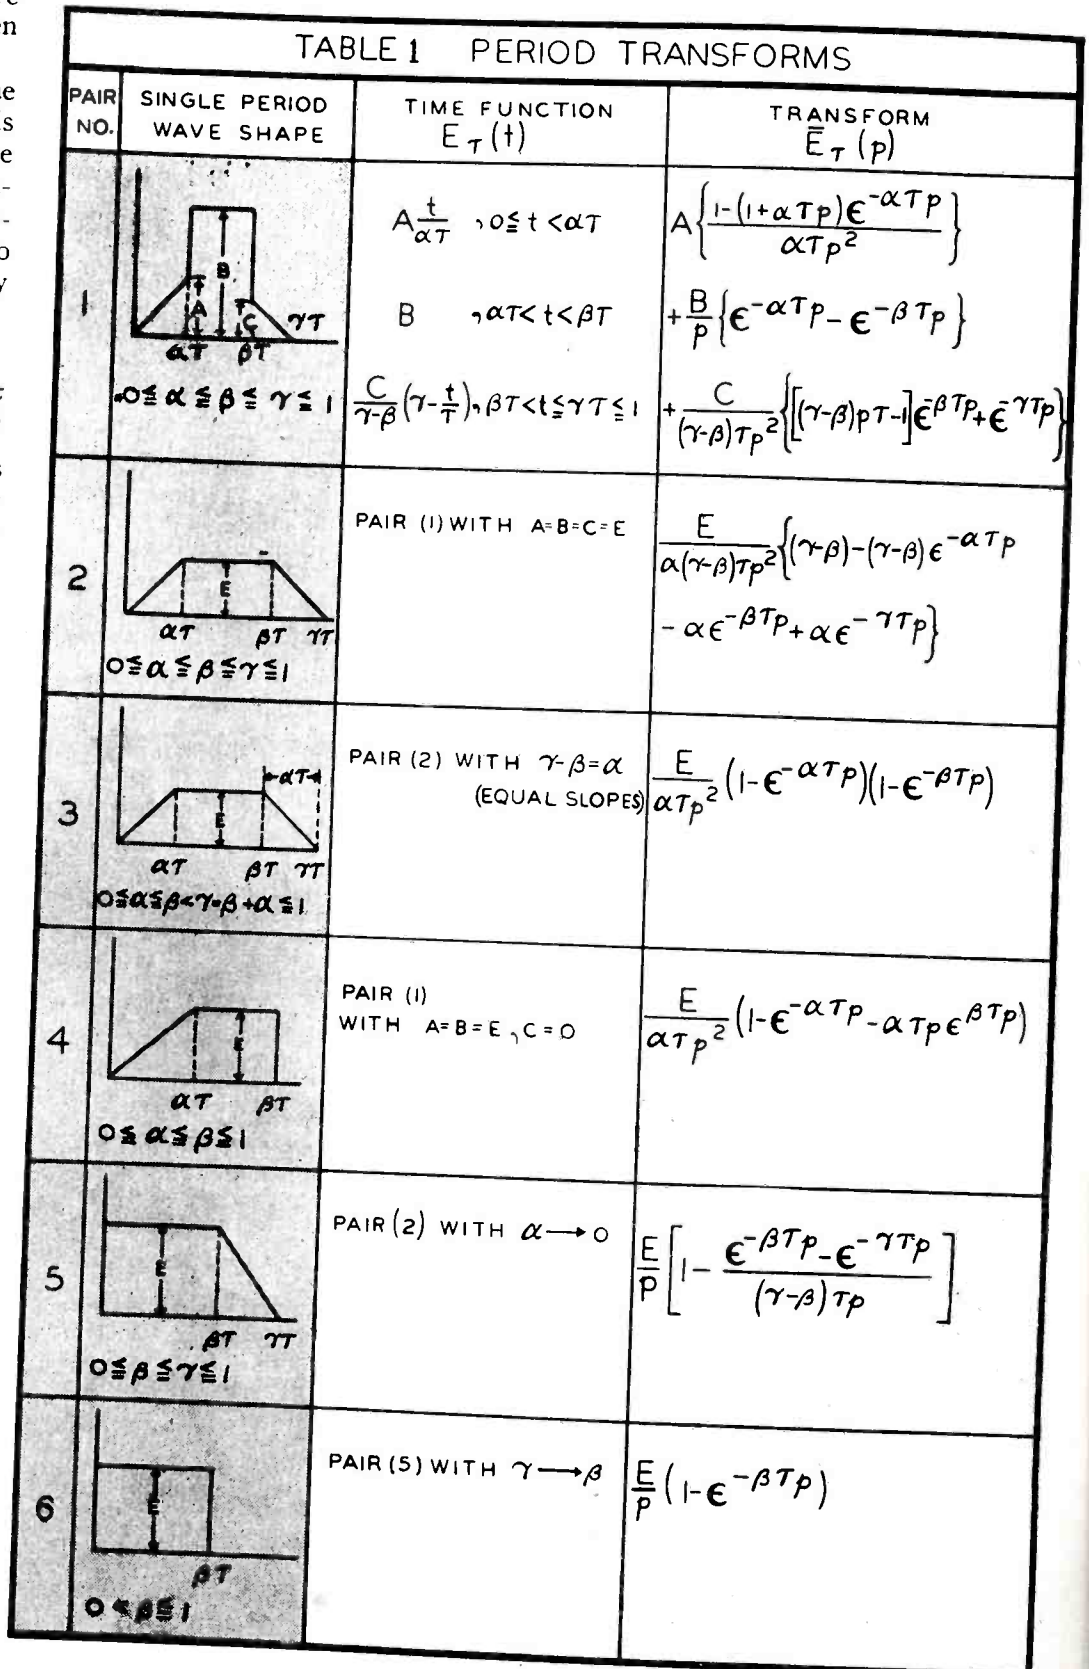 en
TABLE 1 PERIOD TRANSFORMS
PAIR NO.
SINGLE PERIOD WAVE SHAPE
TIME FUNCTION
E_T(t)
TRANSFORM
Ē_T(p)
1
B
A
C
γT
αT βT
0≦α≦β≦γ≦1
A t/αT , 0≦t<αT
B , αT<t<βT
C/(γ-β) (γ-t/T), βT<t≦γT≦1
A{(1-(1+αTp)ϵ^{-αTp})/(αTp²)}
+B/p{ϵ^{-αTp}-ϵ^{-βTp}}
+C/((γ-β)Tp²){[(γ-β)pT-1]ϵ^{-βTp}+ϵ^{-γTp}}
2
E
αT βT γT
0≦α≦β≦γ≦1
PAIR (1) WITH A=B=C=E
E/(α(γ-β)Tp²){(γ-β)-(γ-β)ϵ^{-αTp}
-αϵ^{-βTp}+αϵ^{-γTp}}
3
αT
E
αT βT γT
0≦α≦β<γ=β+α≦1
PAIR (2) WITH γ-β=α
(EQUAL SLOPES)
E/(αTp²)(1-ϵ^{-αTp})(1-ϵ^{-βTp})
4
E
αT βT
0≦α≦β≦1
PAIR (1)
WITH A=B=E, C=0
E/(αTp²)(1-ϵ^{-αTp}-αTpϵ^{βTp})
5
E
βT γT
0≦β≦γ≦1
PAIR (2) WITH α→0
E/p[1-(ϵ^{-βTp}-ϵ^{-γTp})/((γ-β)Tp)]
6
E
βT
0<β≦1
PAIR (5) WITH γ→β
E/p(1-ϵ^{-βTp})